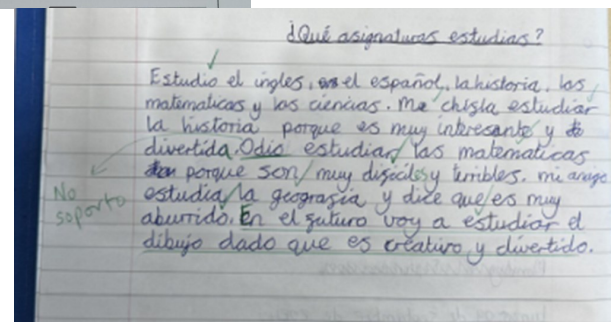 ¿Qué asignaturas estudias?
Estudio el ingles, el español, la historia, las
matematicas y las ciencias. Me chisla estudiar
la historia porque es muy interesante y
divertida. Odio estudiar las matematicas
porque son muy dificiles y terribles. mi amige
No soporto
estudia la geografia y dice que es muy
aburrido. En el futuro voy a estudiar el
dibujo dado que es creativo y divertido.